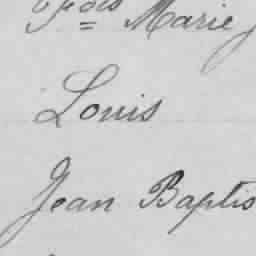 Frois Marie
Louis
Jean Baptis